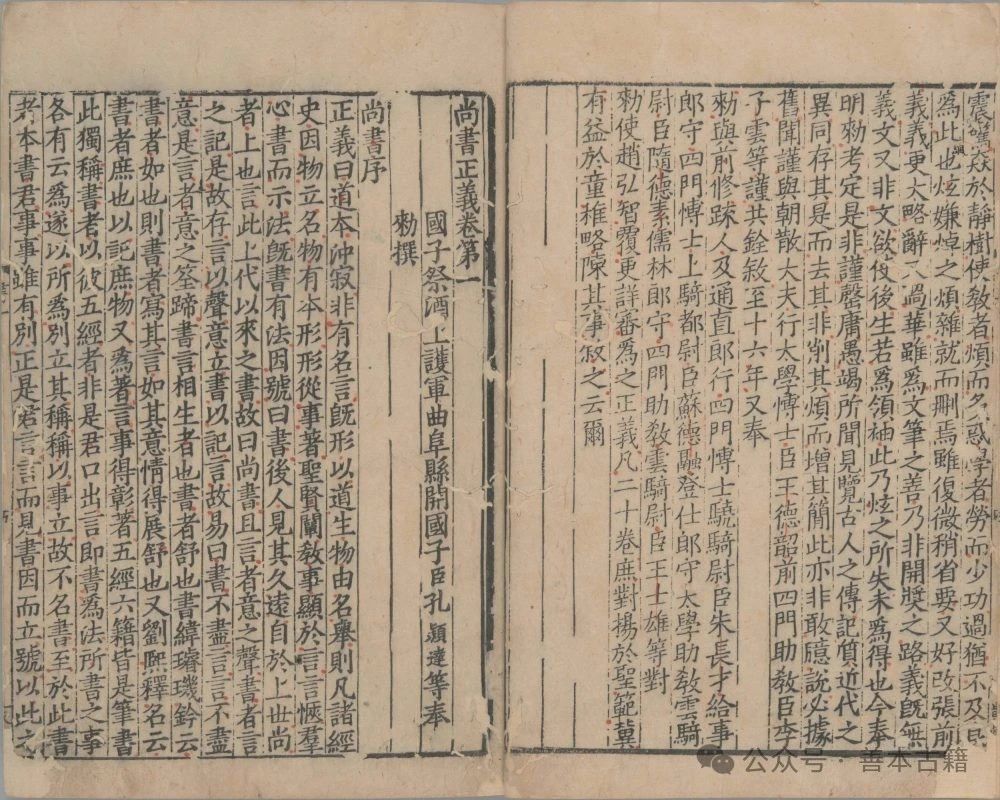 震驚焱於靜樹使教者煩而多惑學者勞而少功過猶不及
為此也炫嫌焯之煩雜就而刪焉雖復微稍省要又好改張前
義義更太略辭又過華雖為文筆之善乃非開獎之路義既無
義文又非文欲使後生若為領袖此乃炫之所失未為得也今奉
明勑考定是非謹罄庸愚竭所聞見覽古人之傳記質近代之
異同存其是而去其非削其煩而增其簡此亦非敢臆說必據
舊聞謹與朝散大夫行太學博士臣王德韶前四門助教臣李
子雲等謹共銓敘至十六年又奉
勑與前修疎人及通直郎行四門博士驍騎尉臣朱長才給事
郎守四門博士上騎都尉臣蘇德融登仕郎守太學助教雲騎
尉臣隨德素儒林郎守四門助教雲騎尉臣王士雄等對
勑使趙弘智覆更詳審為之正義凡二十卷庶對揚於聖範冀
有益於童稚略陳其事敘之云爾
尚書正義卷第一
國子祭酒上護軍曲阜縣開國子臣孔穎達等奉
勑撰
尚書序
正義曰道本沖寂非有名言既形以道生物由名舉則凡諸經
史因物立名物有本形形從事著聖賢闡教事顯於言言愜羣
心書而示法既書有法因號曰書後人見其久遠自於上世尚
者上也言此上代以來之書故曰尚書且言者意之聲書者言
之記是故存言以聲意立書以記言故易曰書不盡言言不盡
意是言者意之筌蹄書言相生者也書者舒也書緯璿璣鈐云
書者如也則書者寫其言如其意情得展舒也又劉熙釋名云
書者庶也以記庶物又為著言事得彰著五經六籍皆是筆書
此獨稱書者以彼五經者非是君口出言即書為法所書之事
各有云為遂以所為別立其稱稱以事立故不名書至於此書
者本書君事事雖有別正是君言言而見書因而立號以此之
公众号·善本古籍